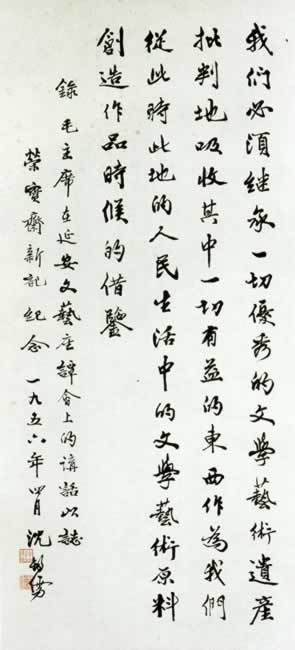 我们必須继承一切優秀的文學藝術遺產
批判地吸收其中一切有益的東西作為我們
從此時此地的人民生活中的文學藝術原料
創造作品時候的借鑒
錄毛主席在延安文藝座譚會上的講話以誌
榮寶齋新記紀念 一九五六年四月 沈鈞儒